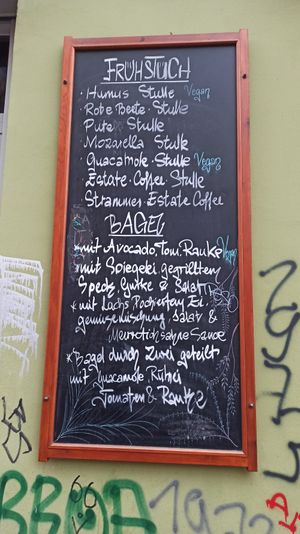 FRÜHSTÜCH
· Humus Stulle Vegan
· Rote Beete · Stulle
· Pute Stulle
· Mozzarella Stulle
· Guacamole · Stulle Vegan
· Estate · Coffee · Stulle
· Strammer Estate Coffee
BAGEL
* mit Avocado, Tom. Rauke Vegan
* mit Spiegelei gegrilltem
Speck Gurke & Salat
* mit Lachs Pochiertem Ei.
gemüsemischung, Salat &
Meerrettichsahne Sauce
* Bagel durch Zwei geteilt
mit Guacamole Rührei
Tomaten & Rauke
BBOA 1972